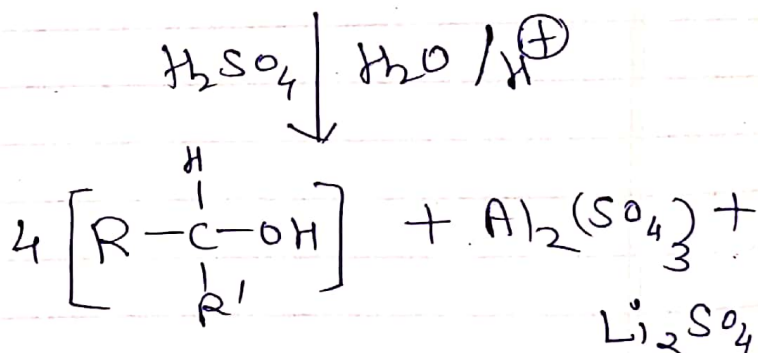 H₂SO₄ ↓ H₂O / H⊕
H
4 [ R — C — OH ] + Al₂(SO₄)₃ +
R'
Li₂SO₄